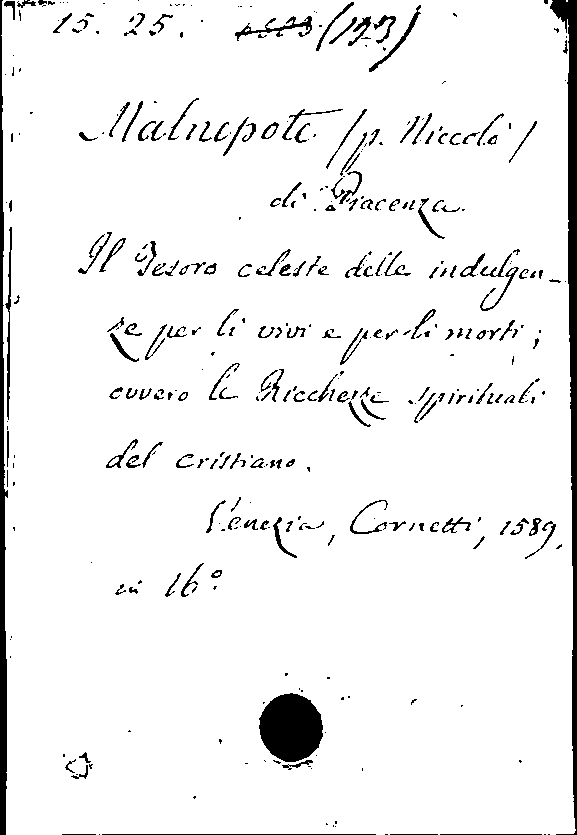 15. 25. (123)
Malnepote /p. Niccolò/
di Piacenza.
Il Tesoro celeste delle indulgen-
ze per li vivi e per li morti;
ovvero le Ricchezze spirituali
del cristiano.
Venezia, Cornetti, 1589,
in 16°